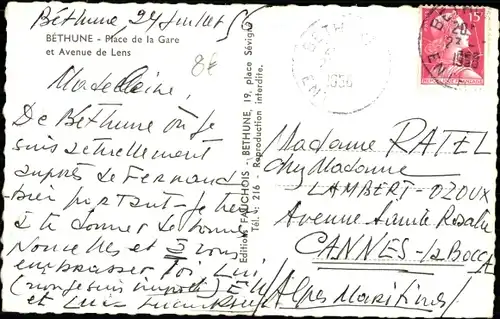 Béthune, 24 juillet 56
BÉTHUNE - Place de la Gare
et Avenue de Lens
8€
Madeleine
De Béthune où je
suis actuellement
auprès de Fernand
bien portant je tiens
à te donner de bonnes
Nouvelles et vous
embrasser Toi, Lui
et
Editions FAUCHOIS - BÉTHUNE, 19, place Sévigné
Tél. : 216 - Reproduction interdite.
BÉTHUNE
1956
15F
REPUBLIQUE FRANÇAISE
Madame RATEL
Chez Madame
LAMBERT-OZOUX
Avenue Sainte Rosalie
CANNES-la Bocca
Alpes Maritimes